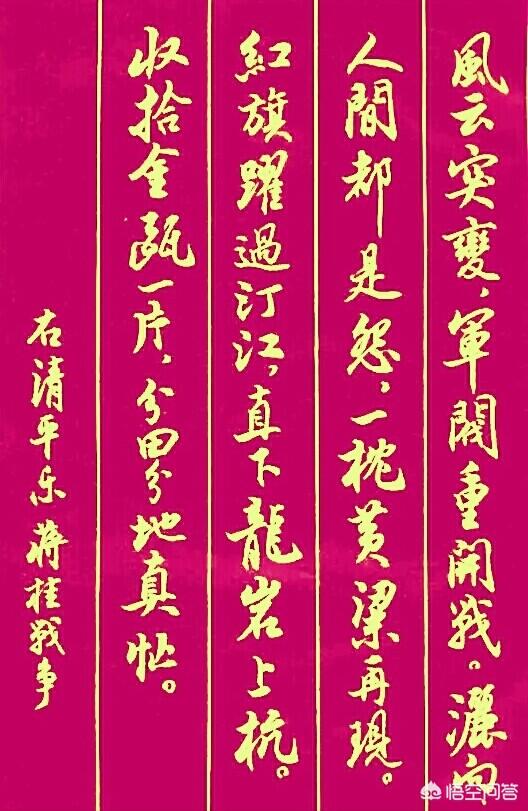 風云突變，軍閥重開戰。灑向
人間都是怨，一枕黄梁再現。
紅旗躍過汀江，直下龍岩上杭。
收拾金甌一片，分田分地真忙。
右清平乐蔣桂战争
悟空问答